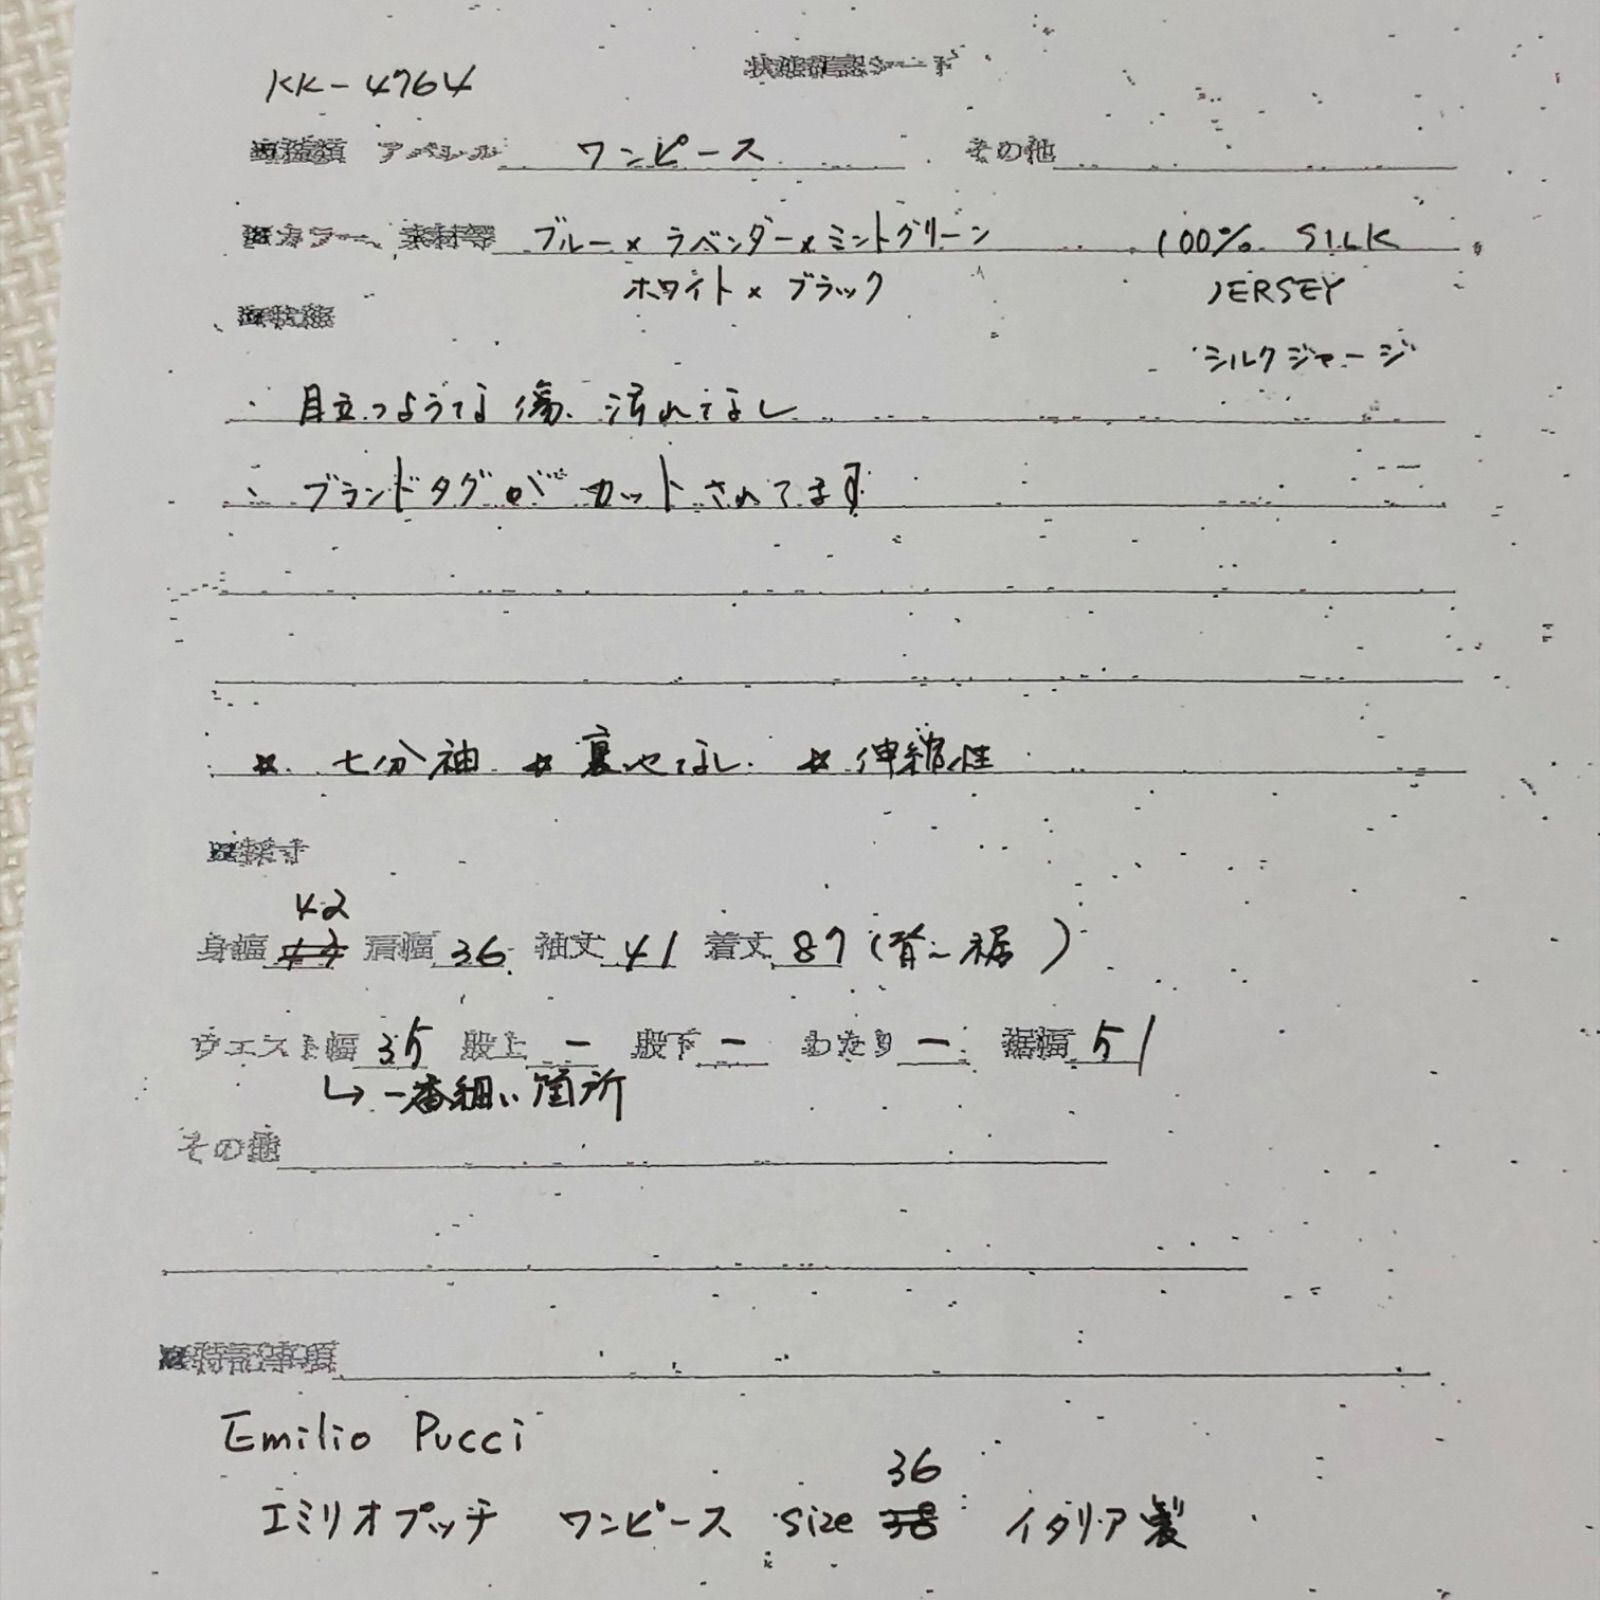 状態確認シート
KK-4764
※種類 アパレル ワンピース その他
※カラー、素材等 ブルー×ラベンダー×ミントグリーン 100% SILK
ホワイト×ブラック JERSEY
※状態 シルクジャージ
・目立つような傷、汚れなし
・ブランドタグがカットされてます
☆七分袖 ☆裏地なし ☆伸縮性
※採寸
42
身幅 肩幅 36 袖丈 41 着丈 87 (首~裾 )
ウエスト幅 35 股上 - 股下 - わたり - 裾幅 51
↳一番細い箇所
その他
※特記事項
Emilio Pucci
36
エミリオプッチ ワンピース size 38 イタリア製